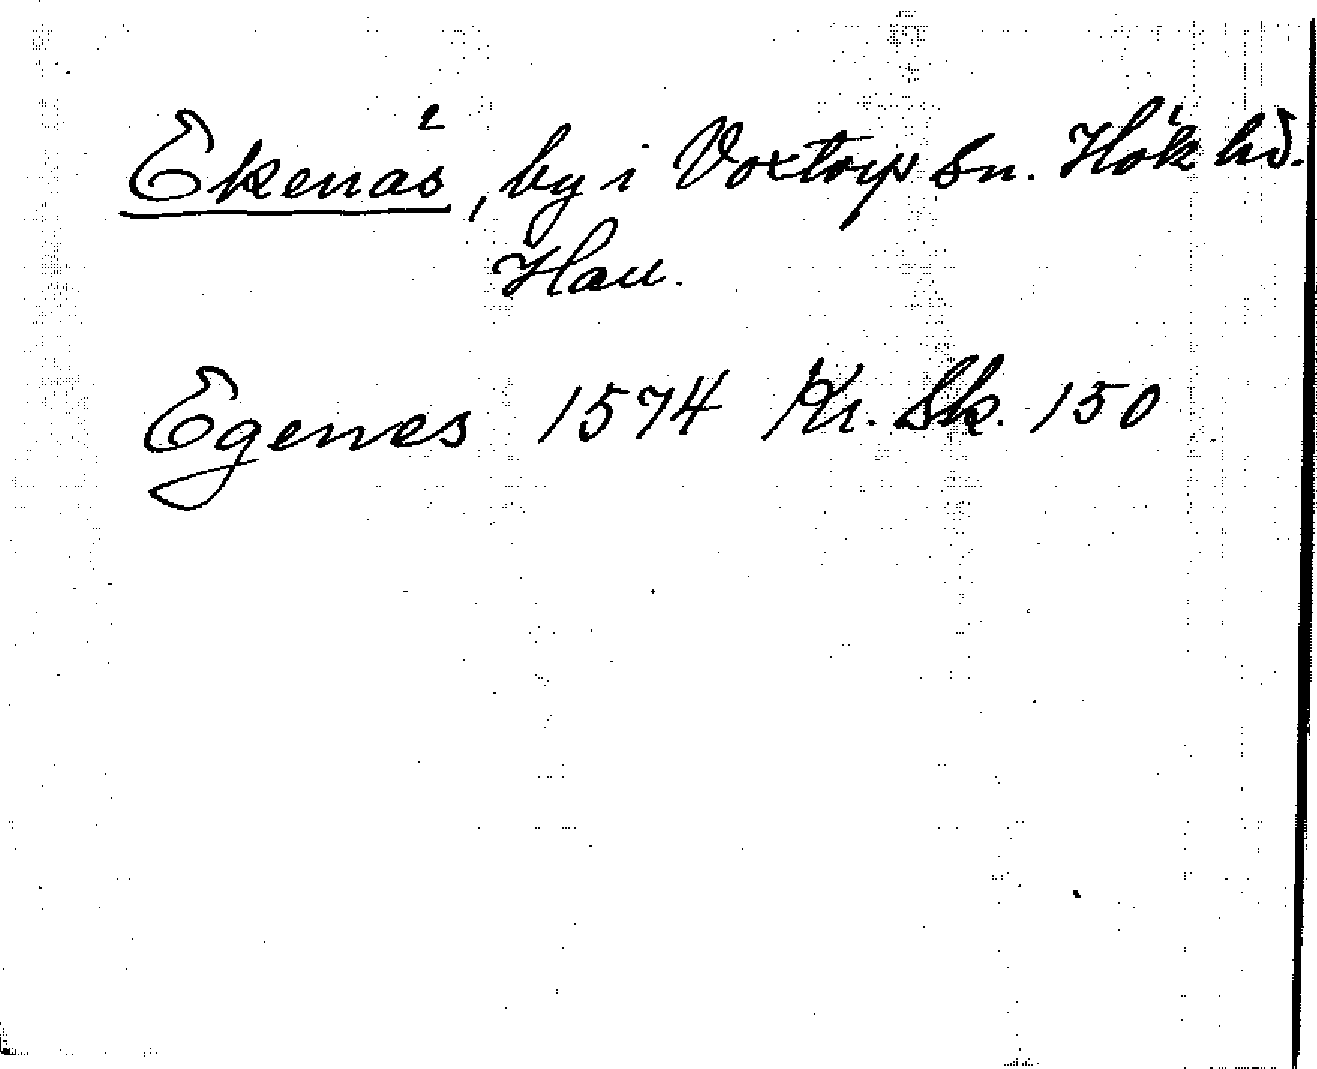 Ekenäs, by i Voxtorp sn. Hök hd.
Hall.
Egenes 1574 Kr. Sk. 150